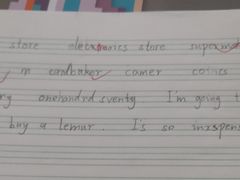 store electronics store superma
in cardbaker comer coins
onehandrd sventy I'm going t
buy a lemur. I's so inexpens